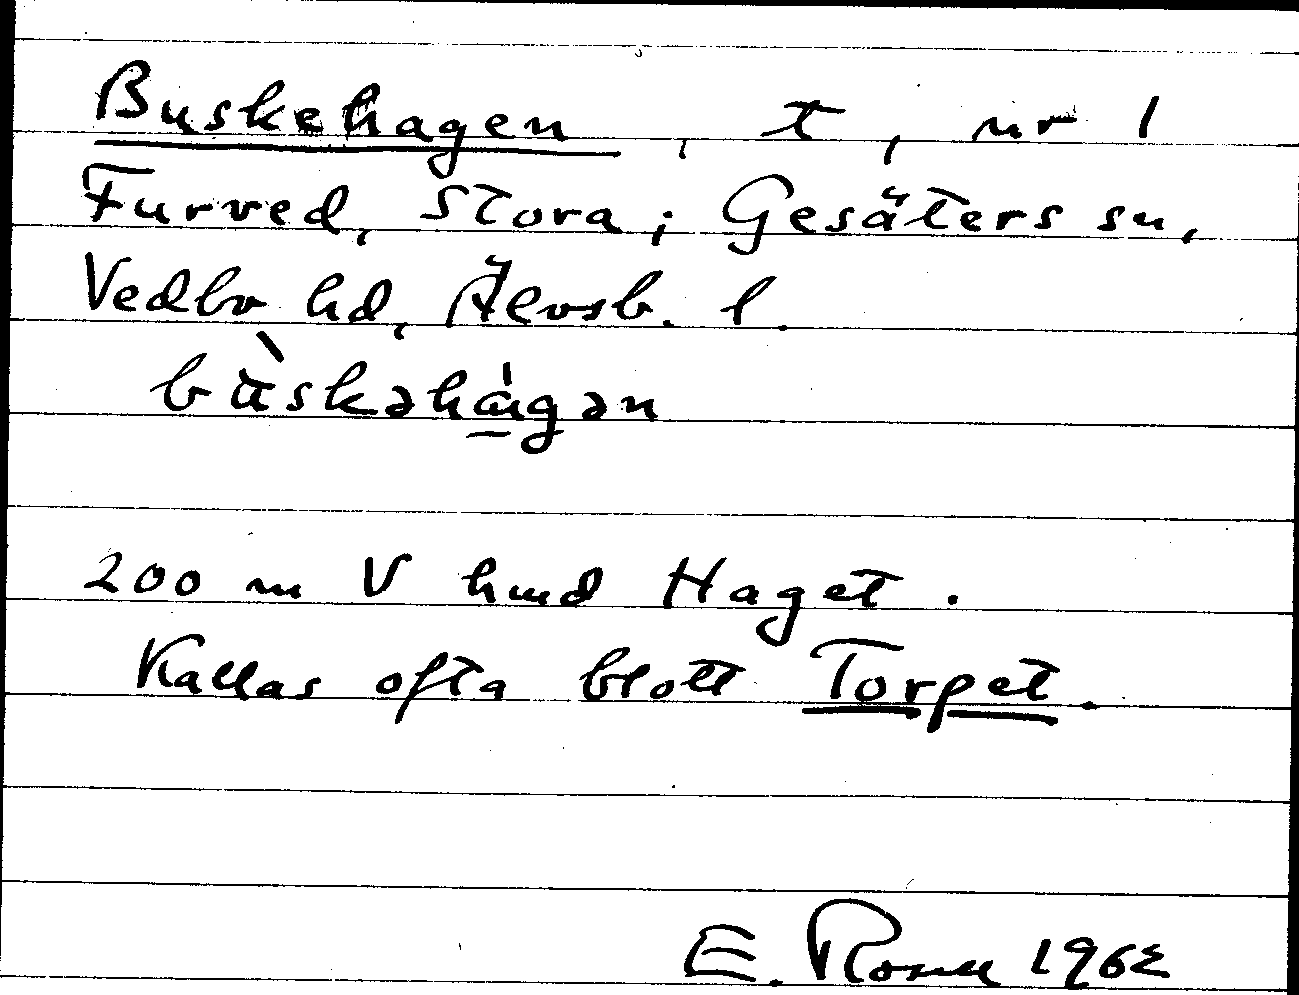 Buskehagen, t, nr 1
Furved, Stora; Gesäters sn,
Vedbo hd, Älvsb. l.
bùskəhágən
200 m V hmd Haget.
Kallas ofta blott Torpet.
E. 1962